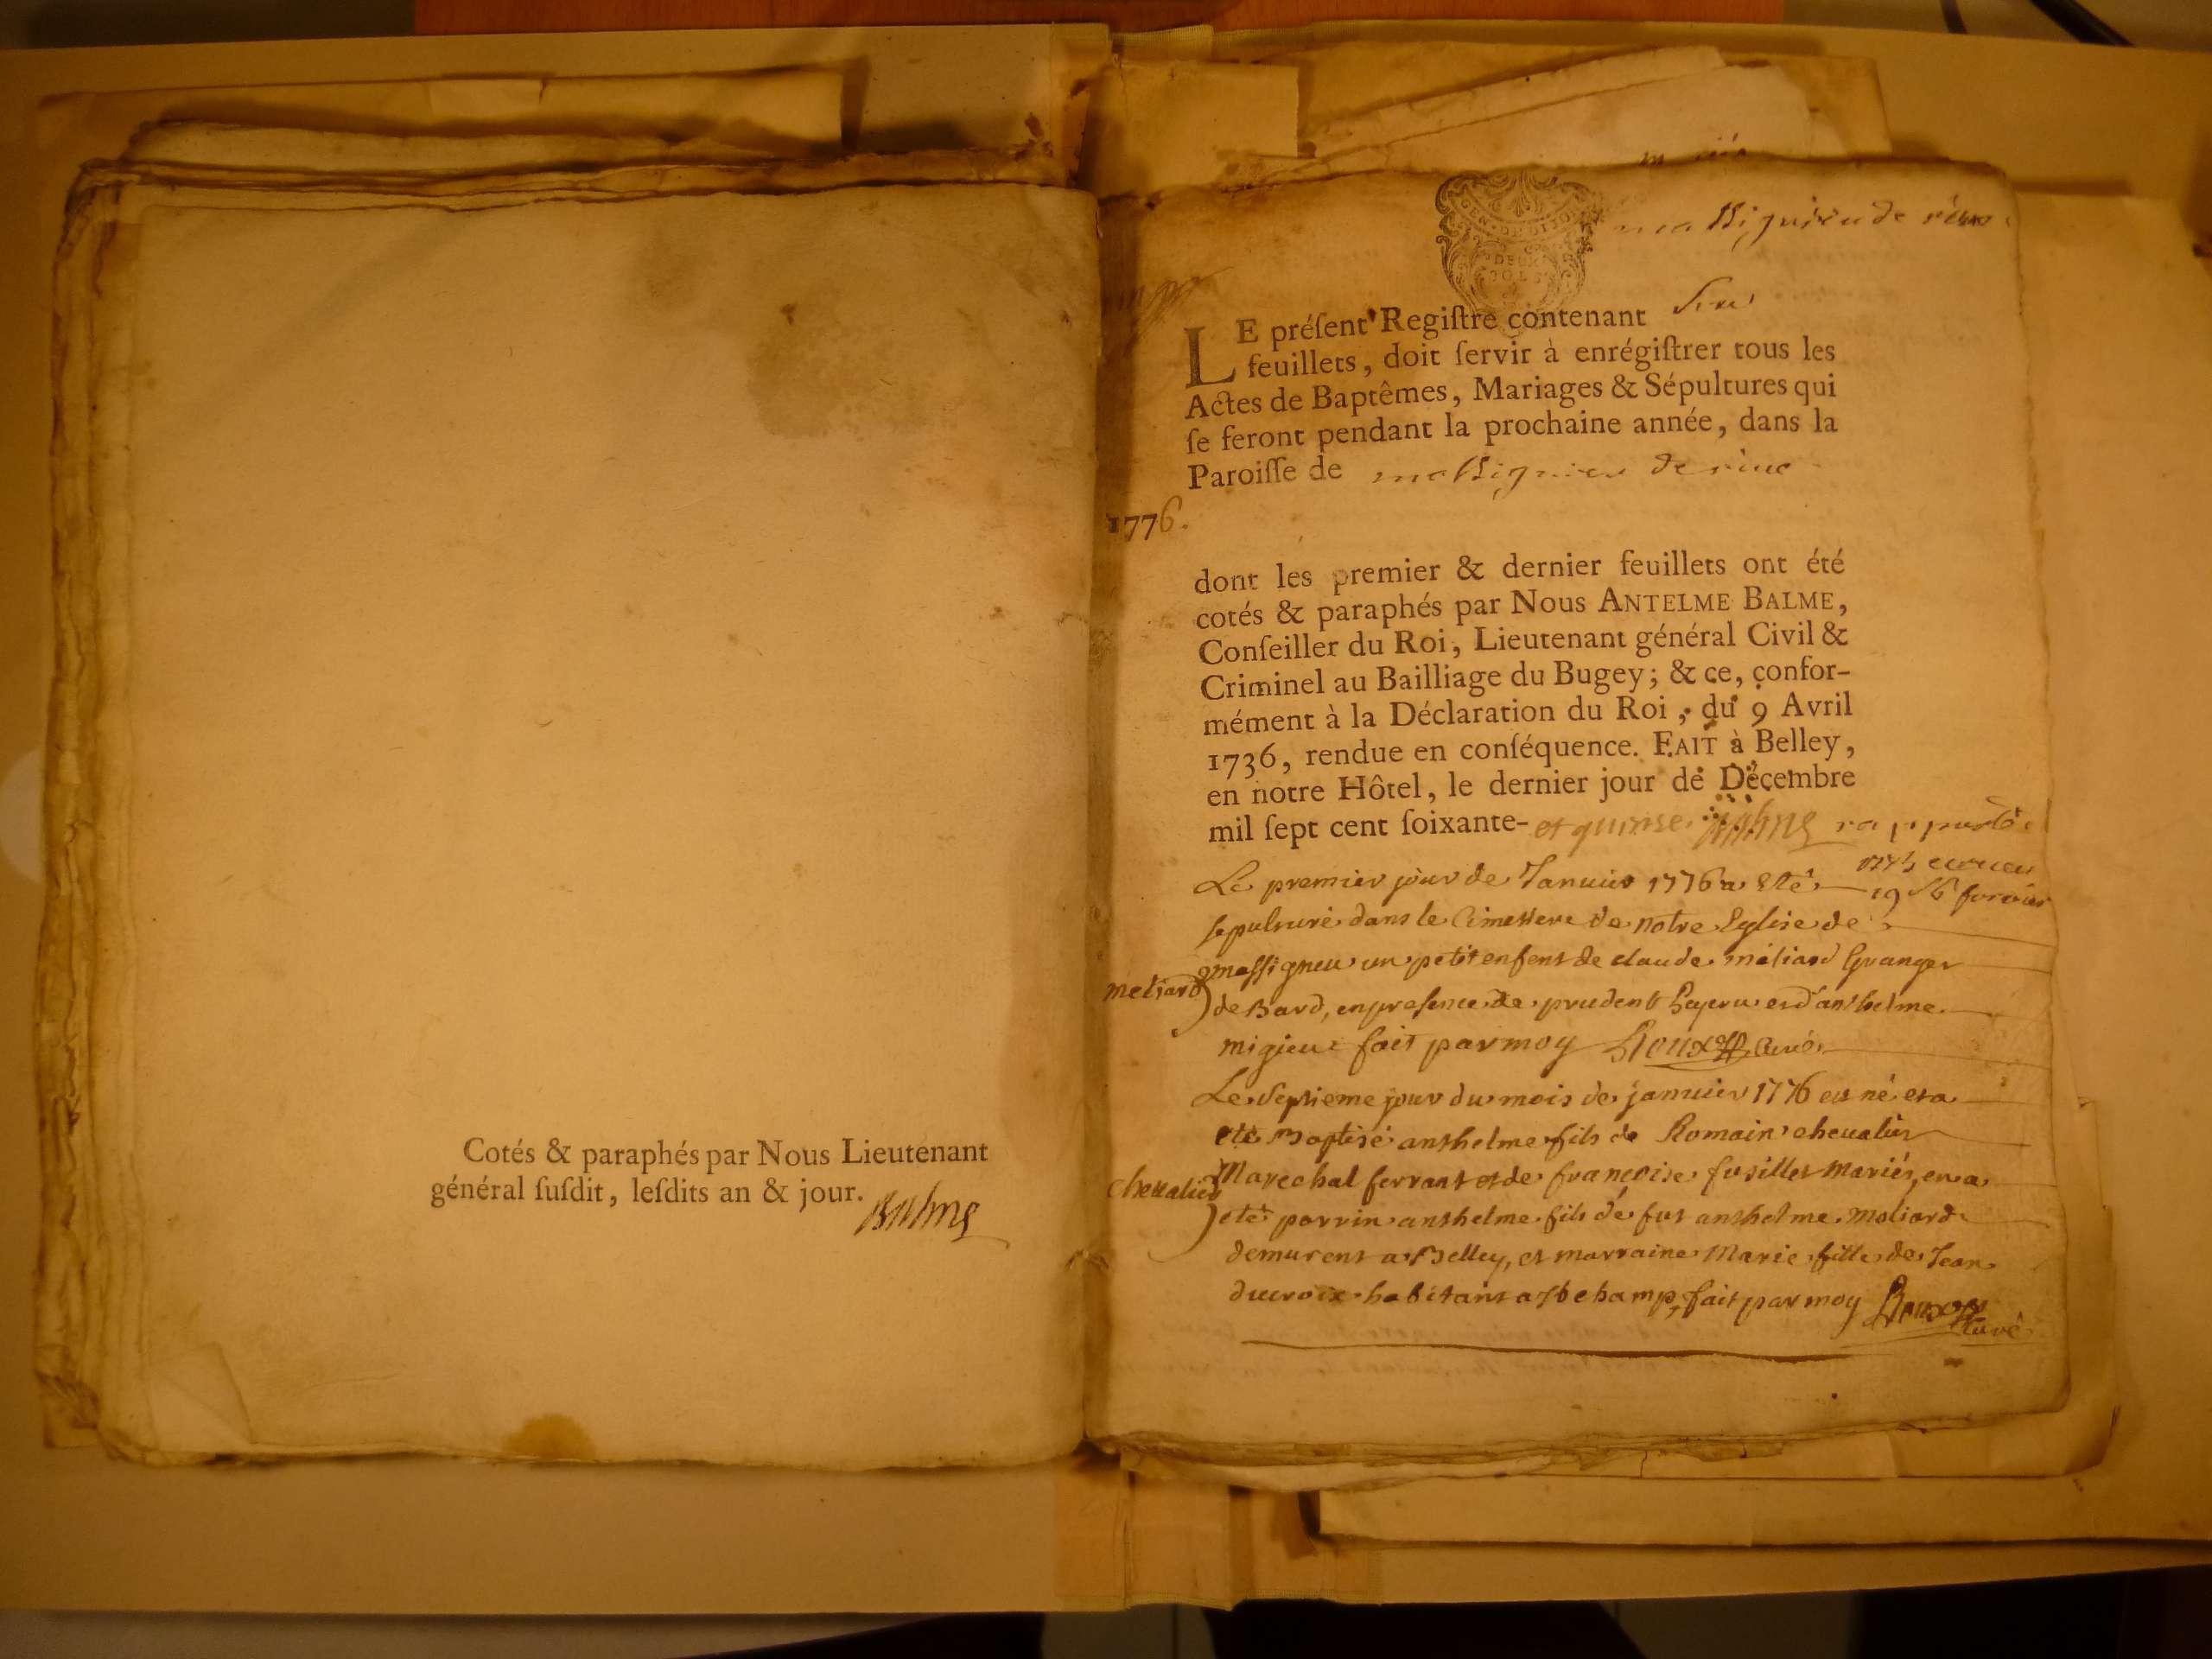 Cotés & paraphés par Nous Lieutenant
général ſuſdit, leſdits an & jour.
Balme
GEN. DE DIJON
DEUX
SOLS
massignieu de rive
LE préſent Regiſtre contenant six
feuillets, doit ſervir à enrégiſtrer tous les
Actes de Baptêmes, Mariages & Sépultures qui
ſe feront pendant la prochaine année, dans la
Paroiſſe de massignieu de rive
1776.
dont les premier & dernier feuillets ont été
cotés & paraphés par Nous ANTELME BALME,
Conſeiller du Roi, Lieutenant général Civil &
Criminel au Bailliage du Bugey; & ce, confor-
mément à la Déclaration du Roi, du 9 Avril
1736, rendue en conſéquence. FAIT à Belley,
en notre Hôtel, le dernier jour de Décembre
mil ſept cent ſoixante- et quinse. Balme rapporté
Le premier jour de Januier 1776 a eté
sepulturé dans le Cimettere de notre Eglise de
massigneu un petit enfent de claude méliard Granger
meliard
de Bard, en presence de prudent et d'anthelme
migieu fait par moy Roux Curé
Le septieme jour du mois de januier 1776 est né et a
eté Baptisé anthelme fils de Romain cheualier
chevalier
Marechal ferrant et de françoise fusillet mariés, en a
eté parrin anthelme fils de fut anthelme moliard
demurent a Belley, et marraine Marie fille de Jean
ducroix habitant a champ, fait par moy Roux
Curé